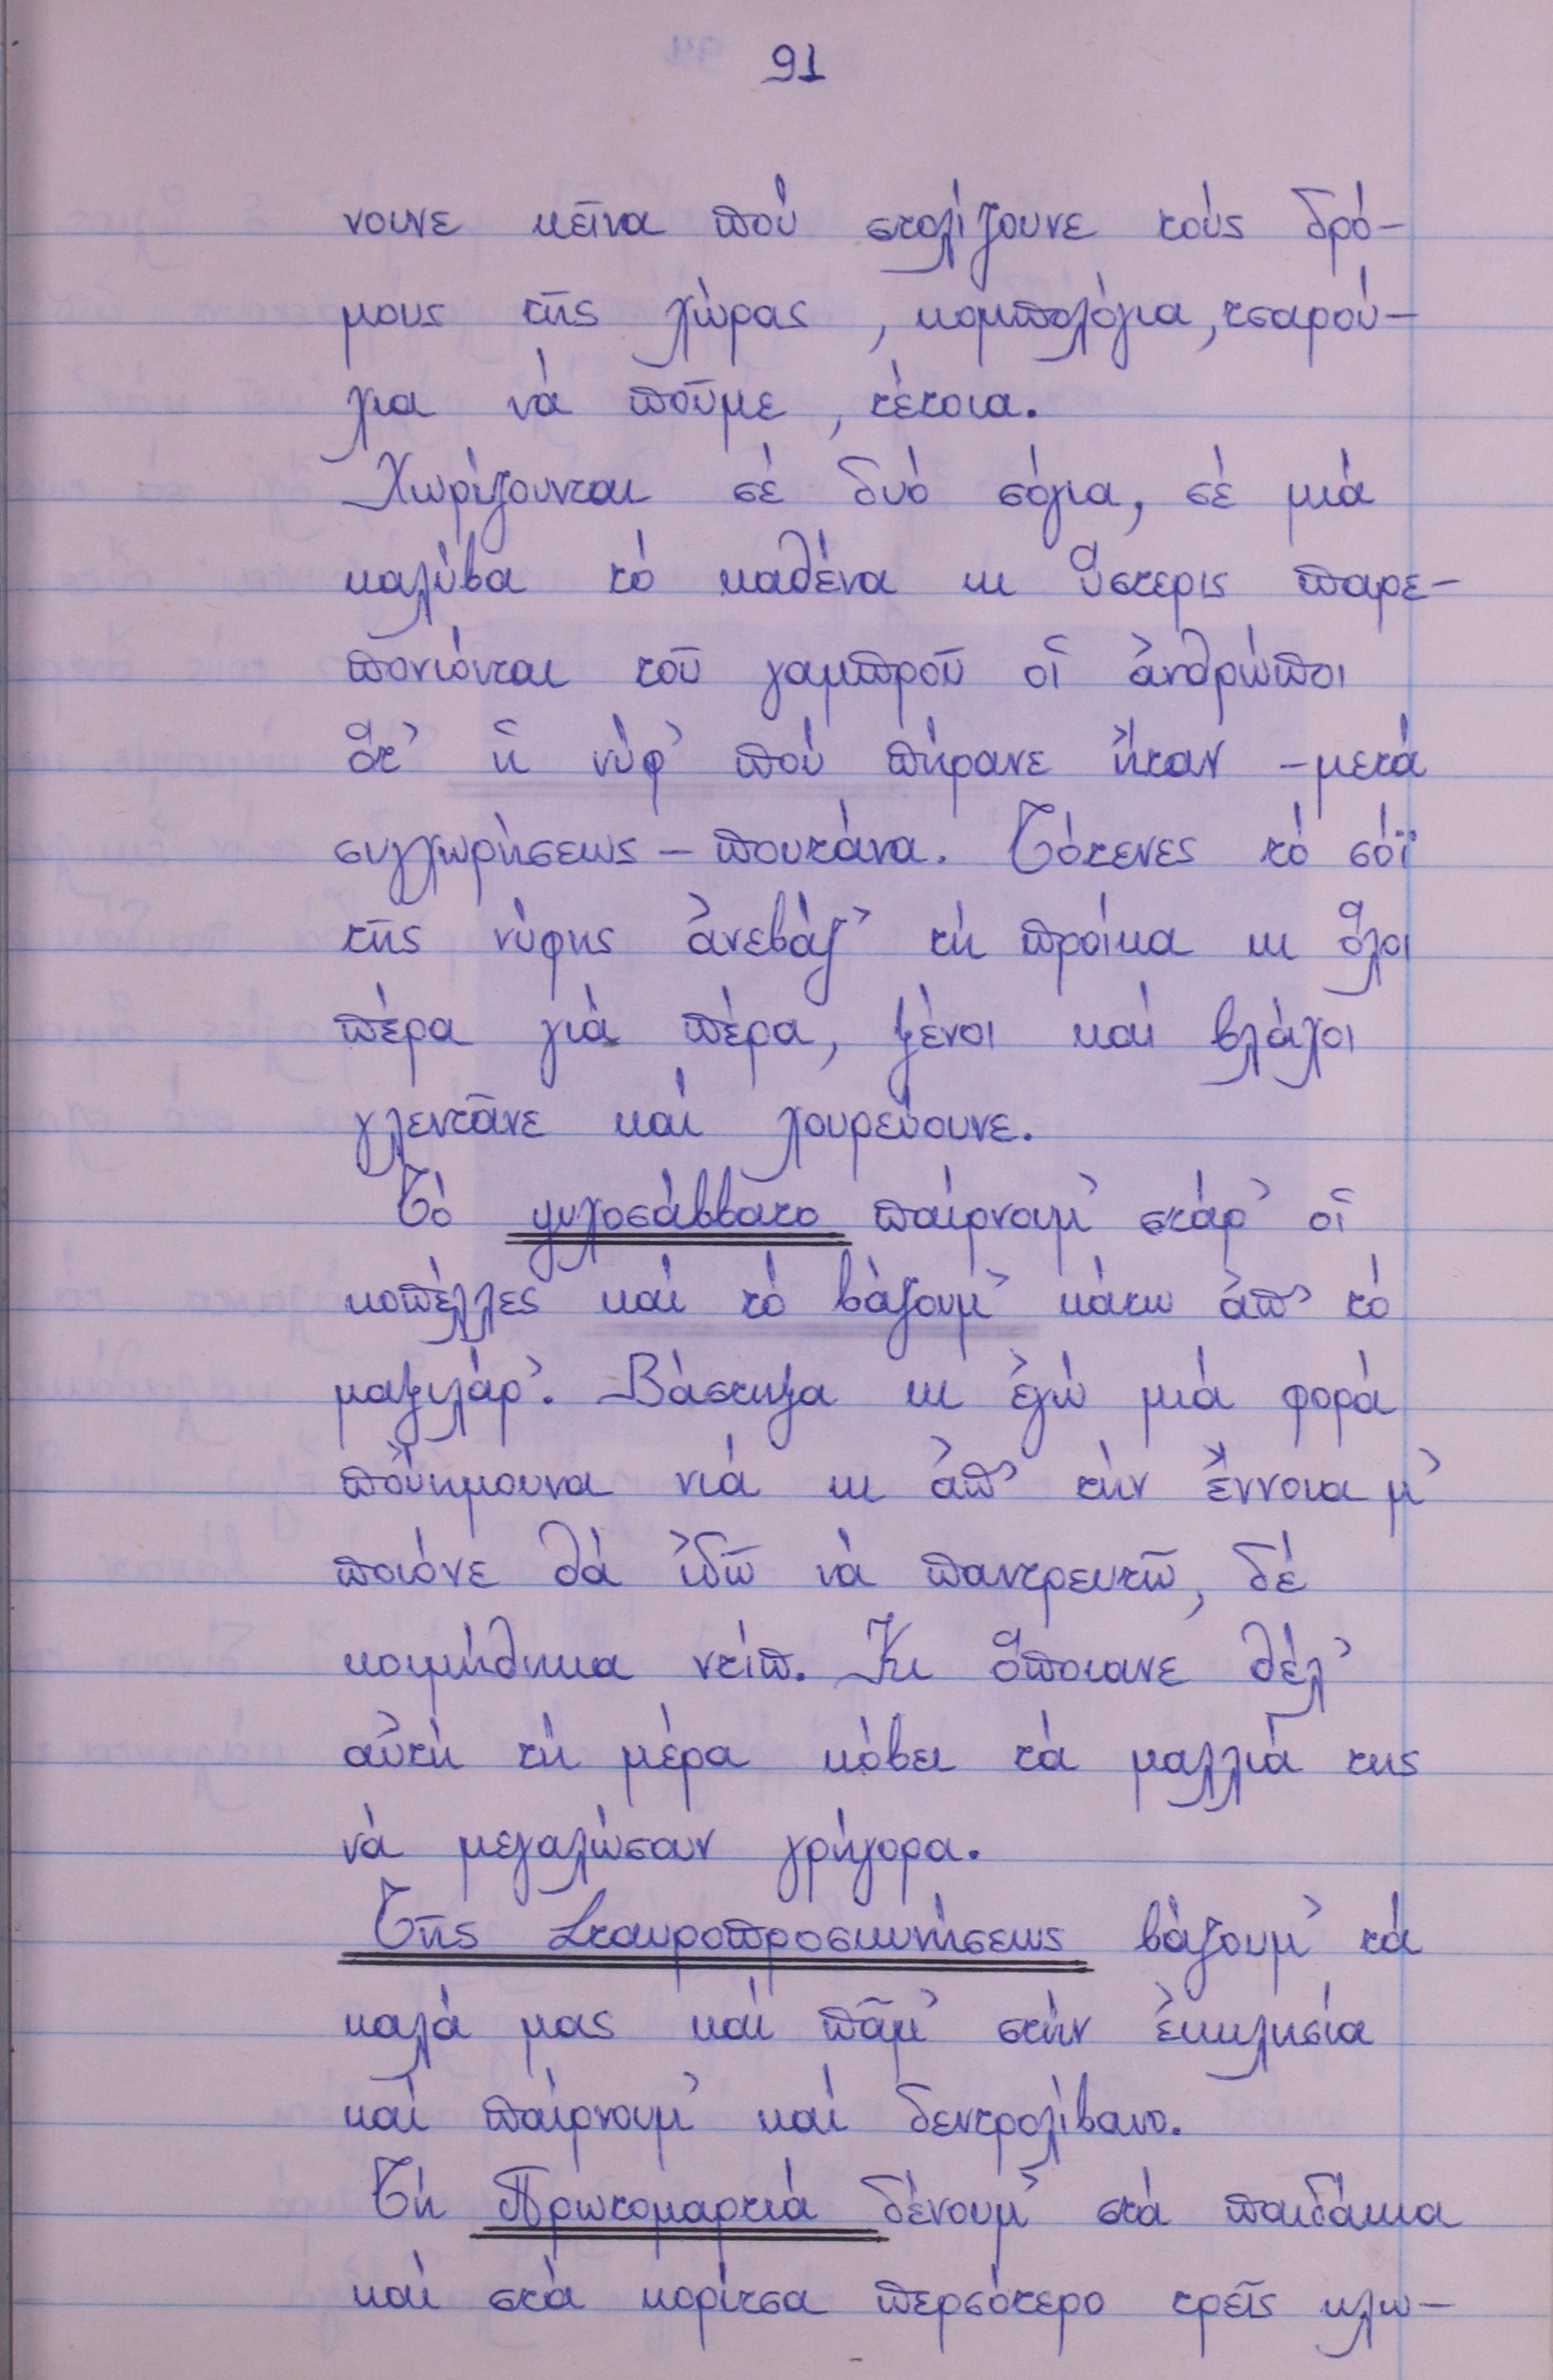 91
νουνε κεῖνα πού στολίζουνε τούς δρό-
μους τῆς χώρας, κομπολόγια, τσαρού-
χια νά ποῦμε, τέτοια.
Χωρίζουνται σέ δυό σόγια, σέ μιά
καλύβα τό καθένα κι ὕστερις παρε-
πονιόνται τοῦ γαμπροῦ οἱ ἀνθρώποι
ὅτ' ἡ νύφ' πού πήρανε ἤταν - μετά
συγχωρήσεως - πουτάνα. Τότενες τό σόϊ
τῆς νύφης ἀνεβάζ' τή προίκα κι ὅλοι
πέρα γιά πέρα, ξένοι καί βλάχοι
γλεντᾶνε καί χουρεύουνε.
Τό ψυχοσάββατο παίρναμ' στάρ' οἱ
κοπέλλες καί τό βάζουμ' κάτω ἀπ' τό
μαξιλάρ'. Βάστηξα κι ἐγώ μιά φορά
πούημουνα νιά κι ἀπ' τήν ἔννοια μ'
ποιόνε θά ἰδῶ νά παντρευτῶ, δέ
κοιμήθηκα ντίπ. Κι ὅποιανε θέλ'
αὐτή τή μέρα κόβει τά μαλλιά της
νά μεγαλώσαν γρήγορα.
Τῆς Σταυροπροσκυνήσεως βάζουμ' τά
καλά μας καί πᾶμ' στήν ἐκκλησία
καί παίρνουμ' καί δεντρολίβανο.
Τή Πρωτομαρτιά δένουμ' στά παιδάκια
καί στά κορίτσα περσότερο τρεῖς κλω-